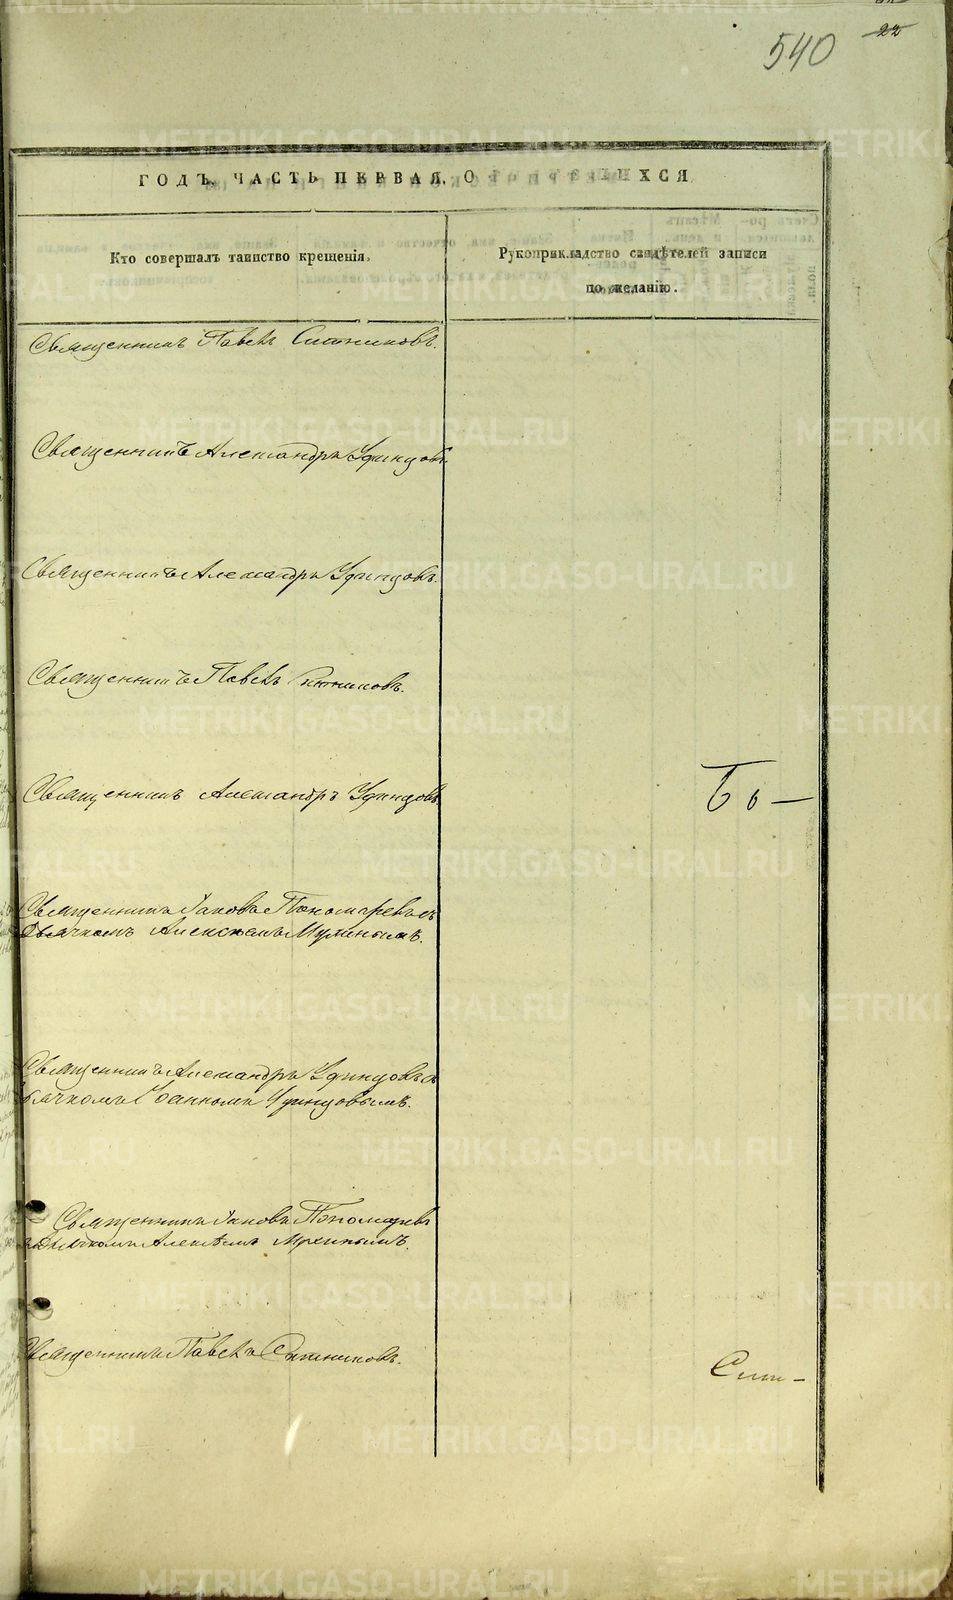 540
22
ГОДЪ, ЧАСТЬ ПЕРВАЯ, О РОДИВШИХСЯ
Кто совершалъ таинство крещенія.
Рукоприкладство свидѣтелей записи
по желанію.
Священникъ Павелъ Ситниковъ.
Священникъ Александръ Удинцовъ.
Священникъ Александръ Удинцовъ.
Священникъ Павелъ Ситниковъ.
Священникъ Александръ Удинцовъ
Бо—
Священникъ Іаковъ Пономаревъ съ
дьячкомъ Алексѣемъ
Священникъ Александръ Удинцовъ съ
дьячкомъ Іоанномъ Удинцовымъ.
Священникъ Іаковъ Пономаревъ
съ дьячкомъ Алексѣемъ Мухинымъ.
Священникъ Павелъ Ситниковъ.
METRIKI.GASO-URAL.RU